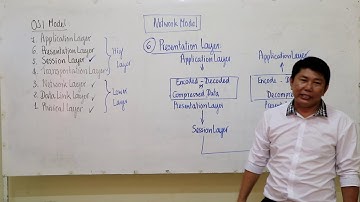 OSI Model
7. Application Layer
6. Presentation Layer
5. Session Layer
4. Transportation Layer
3. Network Layer
2. Data Link Layer
1. Physical Layer
High
Layer
Lower
Layer
Network Model
6 Presentation Layer:
Application Layer
Encoded - Decoded
Compressed Data
Presentation Layer
Session Layer
Application Layer
Encode - Decode